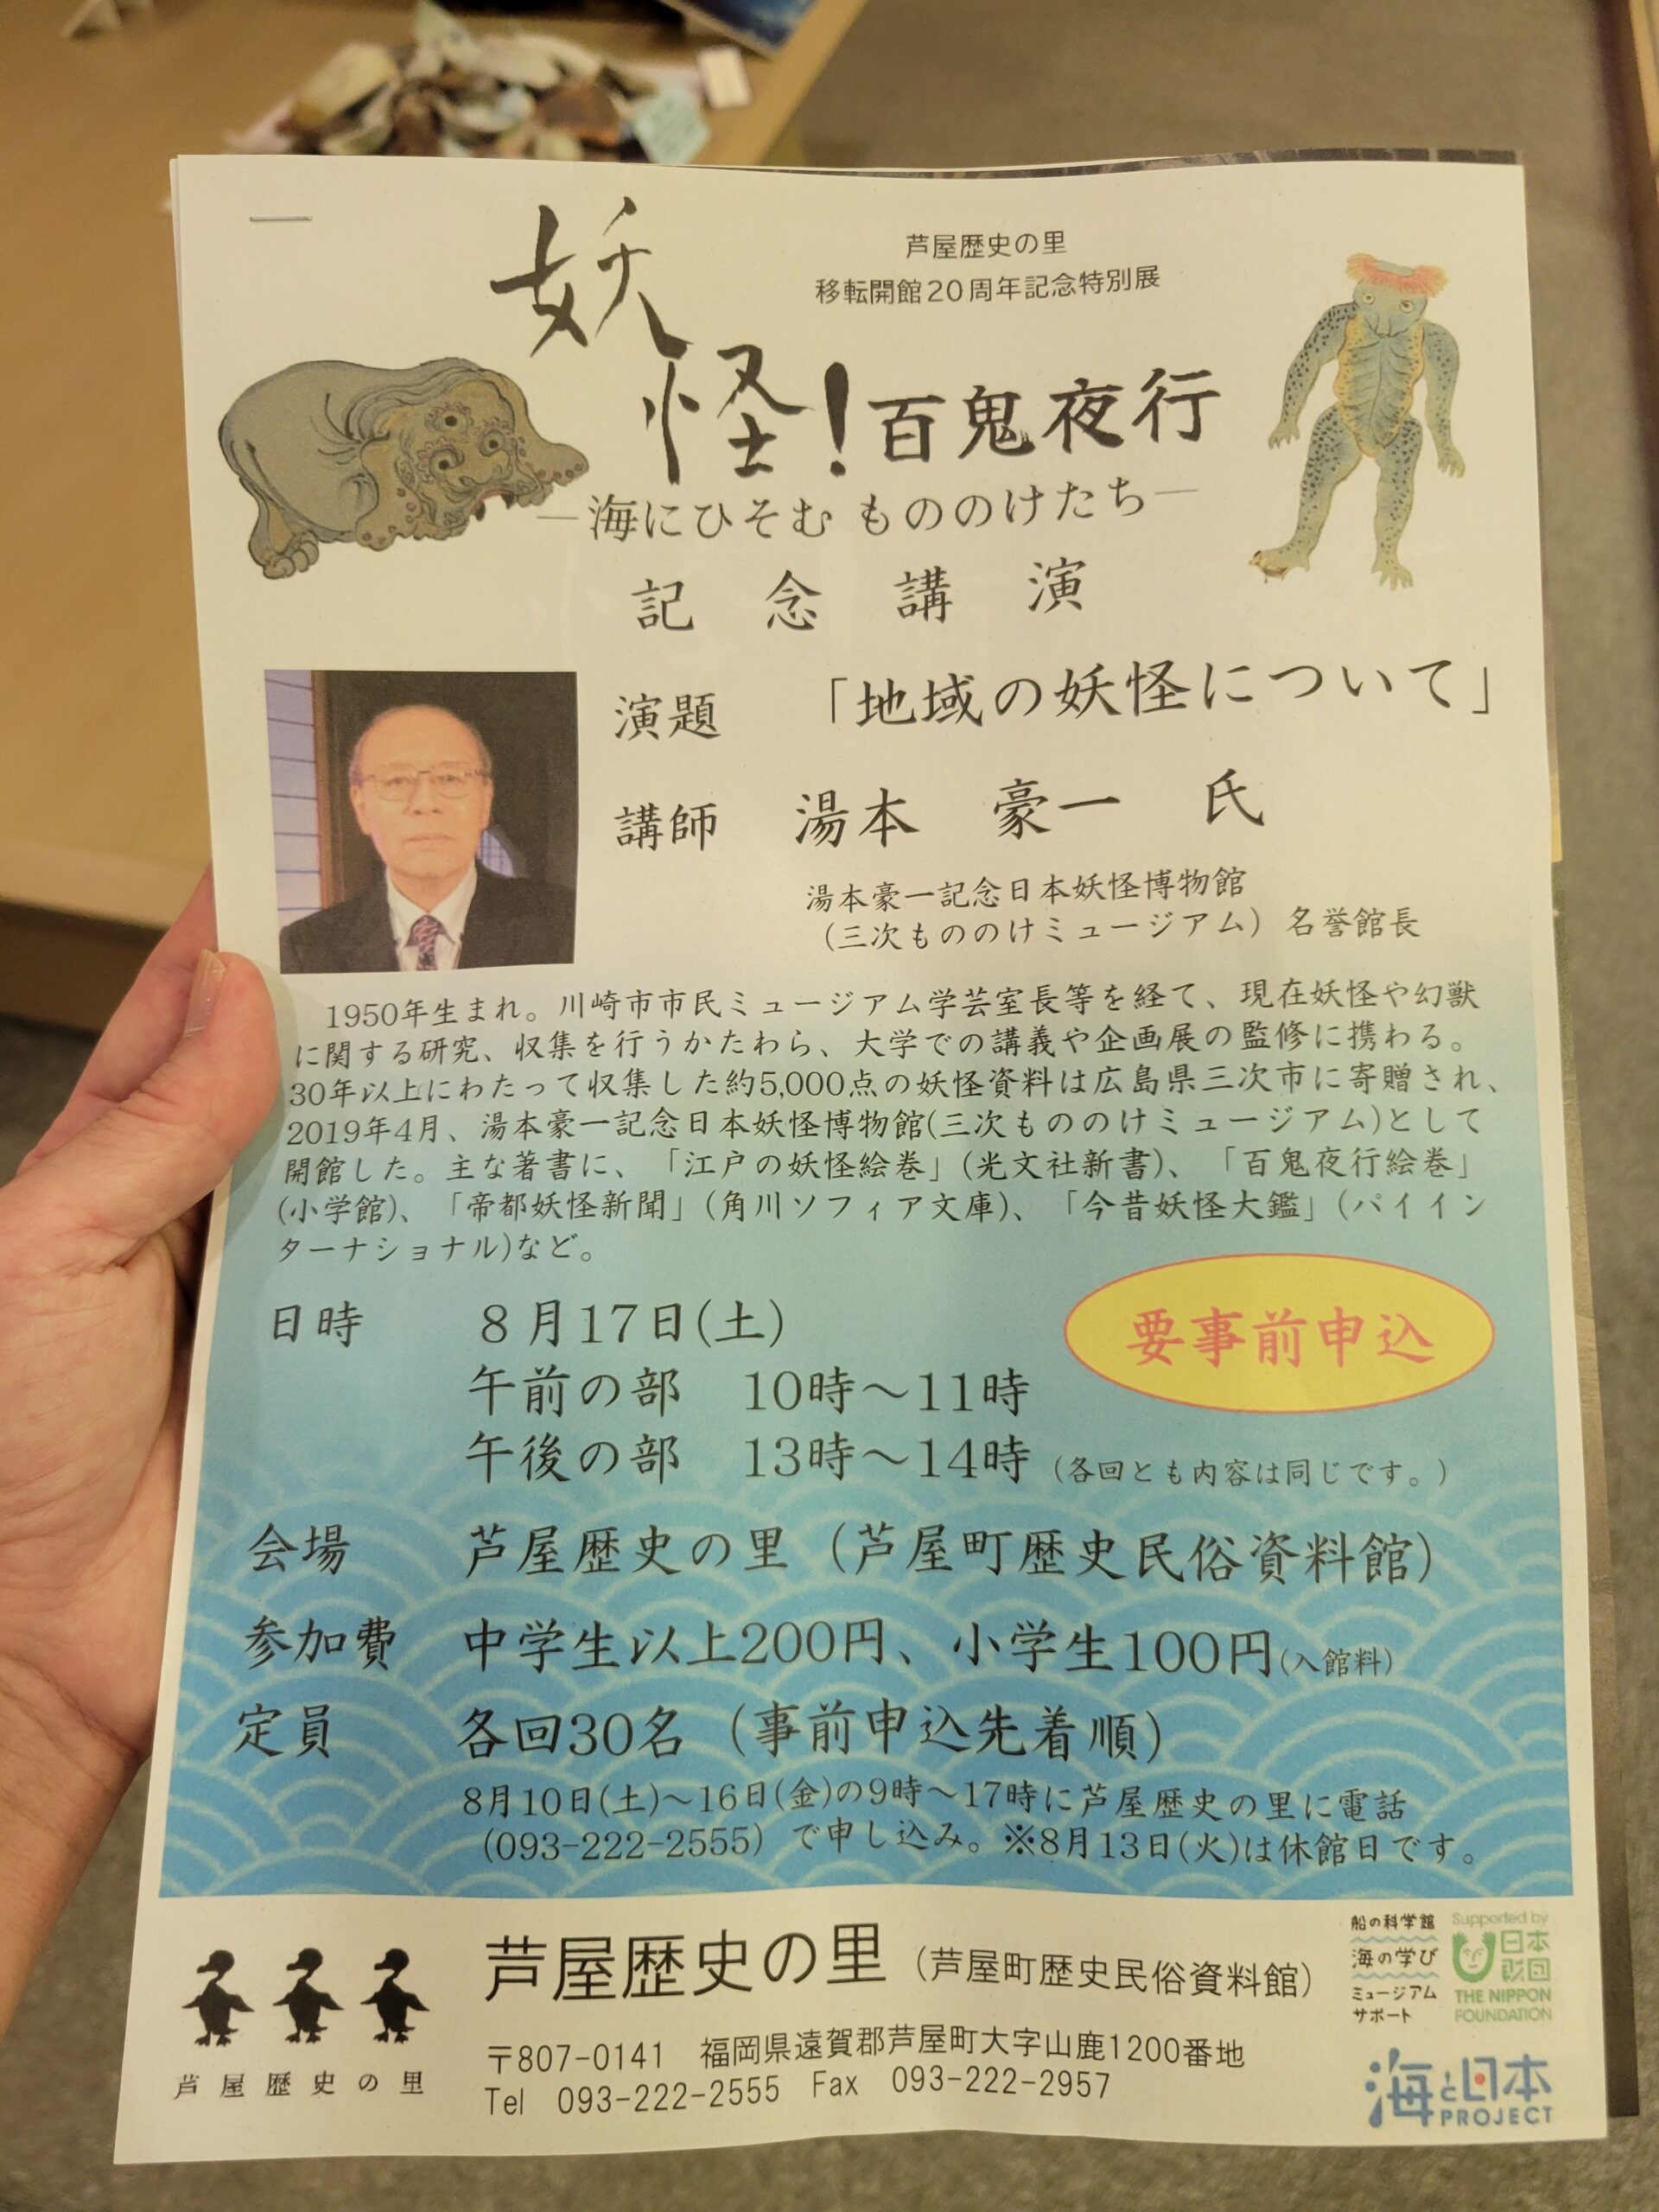 芦屋歴史の里
移転開館20周年記念特別展
妖怪!百鬼夜行
―海にひそむ もののけたち―
記念講演
演題 「地域の妖怪について」
講師 湯本 豪一 氏
湯本豪一記念日本妖怪博物館
(三次もののけミュージアム) 名誉館長
1950年生まれ。川崎市市民ミュージアム学芸室長等を経て、現在妖怪や幻獣
に関する研究、収集を行うかたわら、大学での講義や企画展の監修に携わる。
30年以上にわたって収集した約5,000点の妖怪資料は広島県三次市に寄贈され、
2019年4月、湯本豪一記念日本妖怪博物館(三次もののけミュージアム)として
開館した。主な著書に、「江戸の妖怪絵巻」(光文社新書)、「百鬼夜行絵巻」
(小学館)、「帝都妖怪新聞」(角川ソフィア文庫)、「今昔妖怪大鑑」(パイイン
ターナショナル)など。
要事前申込
日時 8月17日(土)
午前の部 10時～11時
午後の部 13時～14時 (各回とも内容は同じです。)
会場 芦屋歴史の里(芦屋町歴史民俗資料館)
参加費 中学生以上200円、小学生100円(入館料)
定員 各回30名(事前申込先着順)
8月10日(土)～16日(金)の9時～17時に芦屋歴史の里に電話
(093-222-2555)で申し込み。※8月13日(火)は休館日です。
芦屋歴史の里
芦屋歴史の里(芦屋町歴史民俗資料館)
〒807-0141 福岡県遠賀郡芦屋町大字山鹿1200番地
Tel 093-222-2555 Fax 093-222-2957
船の科学館
海の学び
ミュージアム
サポート
Supported by
日本
財団
THE NIPPON
FOUNDATION
海と日本
PROJECT